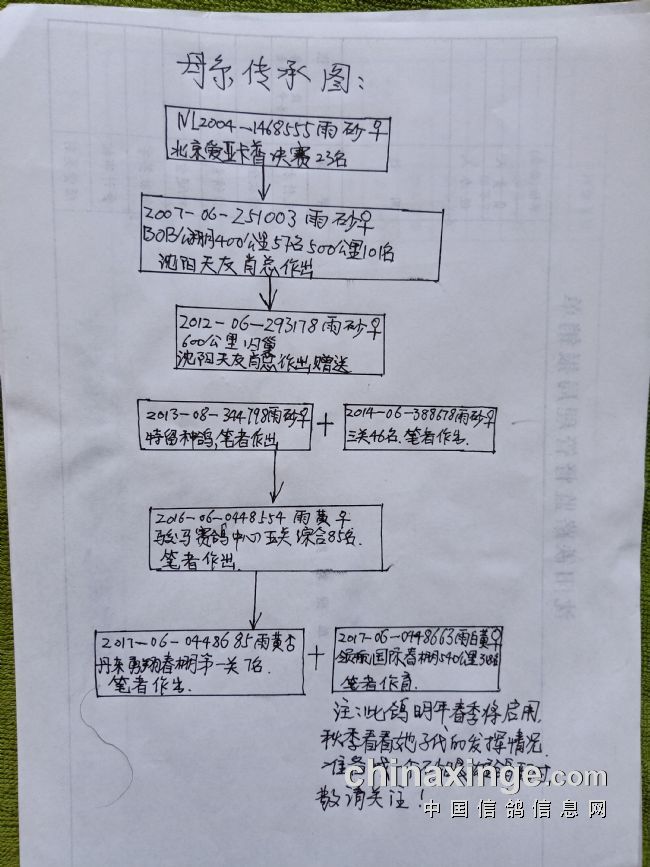 丹系传承图:
NL2004-1468555雨砂♀
北京爱亚卡普决赛23名
2007-06-251003雨砂♀
公棚400公里57名500公里101名
沈阳天友肖总作出
2012-06-293178雨砂♀
600公里归巢
沈阳天友肖总作出赠送
2013-08-344798雨砂♀
特留种鸽,笔者作出
+
2014-06-388678雨砂♀
三关46名.笔者作出
2016-06-0448554雨黄♀
骏马赛鸽中心五关综合85名.
笔者作出.
2017-06-0448685雨黄
春棚第一关7名.
笔者作出.
+
2017-06-0448663雨白黄♀
国际春棚540公里
笔者作育.
注:此鸽明年春季将启用.
秋季看看她子代的发挥情况.
准备
敬请关注!
chinaxinge.com
中国信鸽信息网